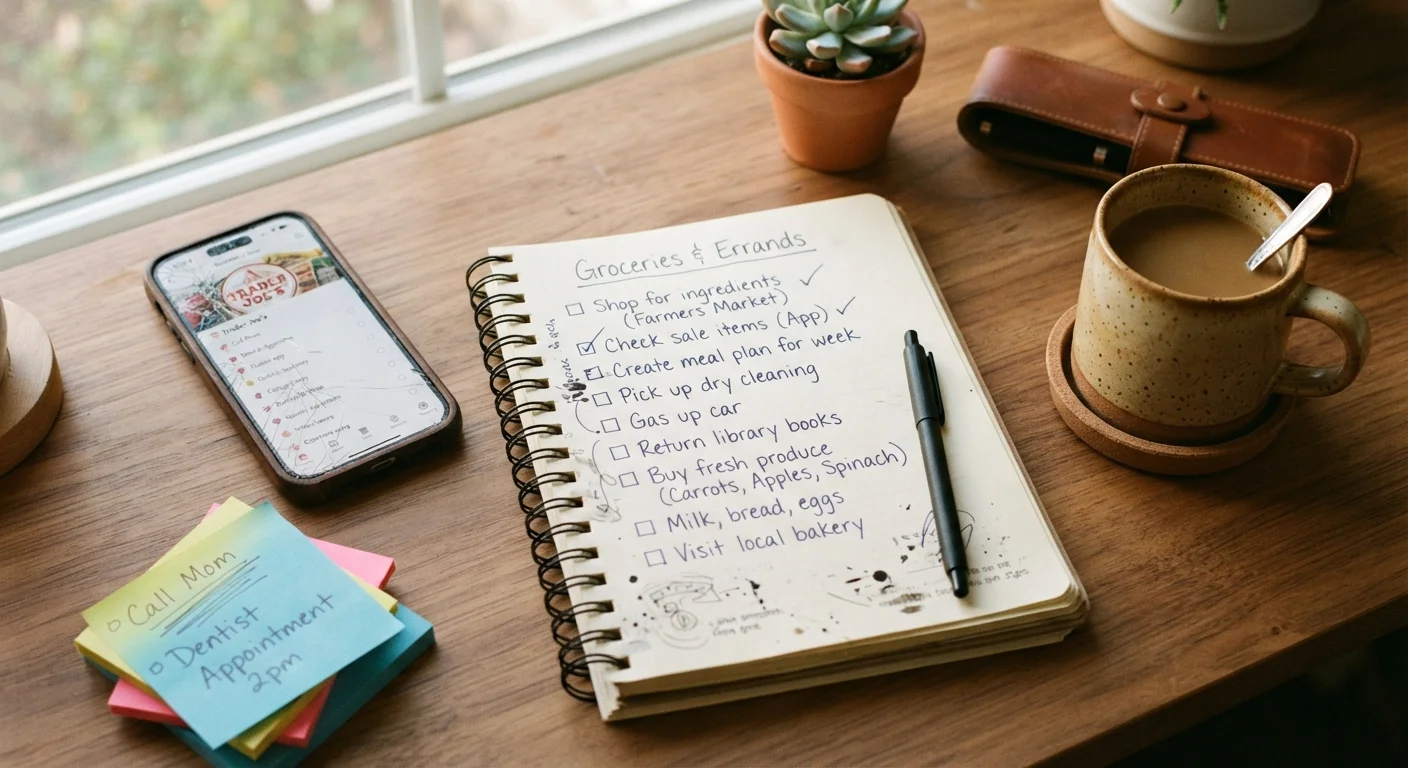 TRADER JOE'S
Trader Joe's
Call Mom
Dentist
Appointment
2pm
Groceries & Errands
Shop for ingredients
(Farmers Market)
Check sale items (App)
Create meal plan for week
Pick up dry cleaning
Gas up car
Return library books
Buy fresh produce
(Carrots, Apples, Spinach)
Milk, bread, eggs
Visit local bakery